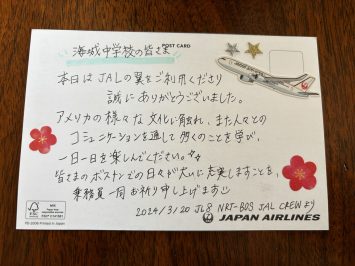 POST CARD
海城中学校の皆さま
本日はJALの翼をご利用くださり
誠にありがとうございました。
アメリカの様々な文化に触れ、また人々との
コミュニケーションを通して多くのことを学び、
一日一日を楽しんでください。
皆さまのボストンでの日々が大いに充実しますことを、
乗務員一同お祈り申し上げます
2024/3/20 JL8 NRT-BOS JAL CREWより
JAPAN AIRLINES
FSC
MIX